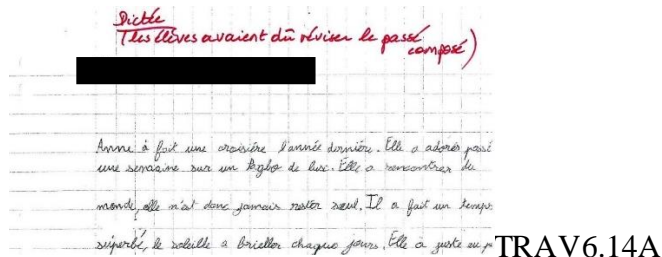 Dictée
(les élèves avaient dû réviser le passé
composé)
Anne à fait une croisière l'année dernière. Elle a adorés passé
une semaine sur un de luxe. Elle a rencontrer du
monde, elle n'ai donc jamais rester seul. Il a fait un temps
superbé, le soleille a brieller chaque jours. Elle à juste eu p
TRAV6.14A